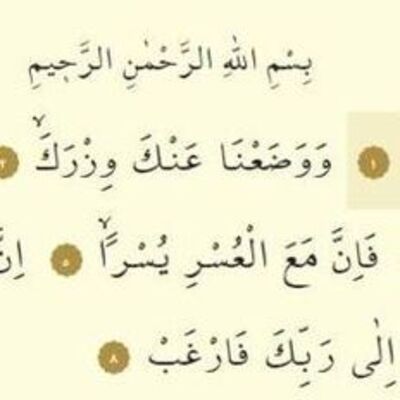 بِسْمِ اللهِ الرَّحْمٰنِ الرَّحٖيمِ
١ وَوَضَعْنَا عَنْكَ وِزْرَكَۙ ٢
فَاِنَّ مَعَ الْعُسْرِ يُسْراًۙ ٥ اِنَّ
اِلٰى رَبِّكَ فَارْغَبْ ٨